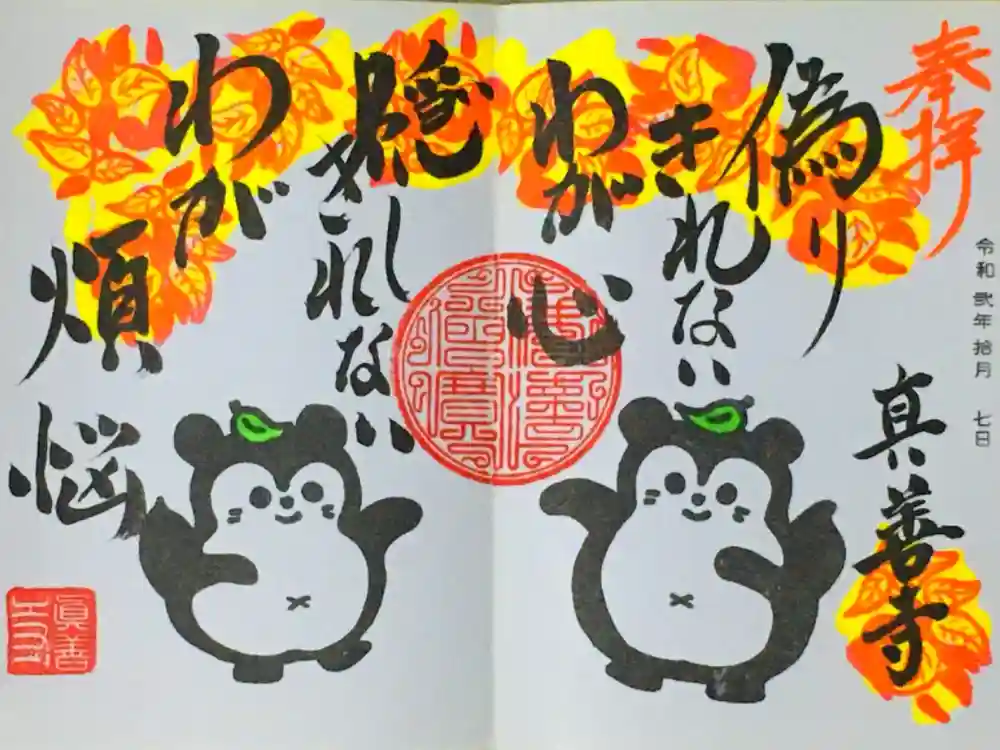 奉拝
令和 弐年 拾月 七日
真善寺
偽り
きれない
わが
心
隠し
きれない
わが
煩
悩
眞善